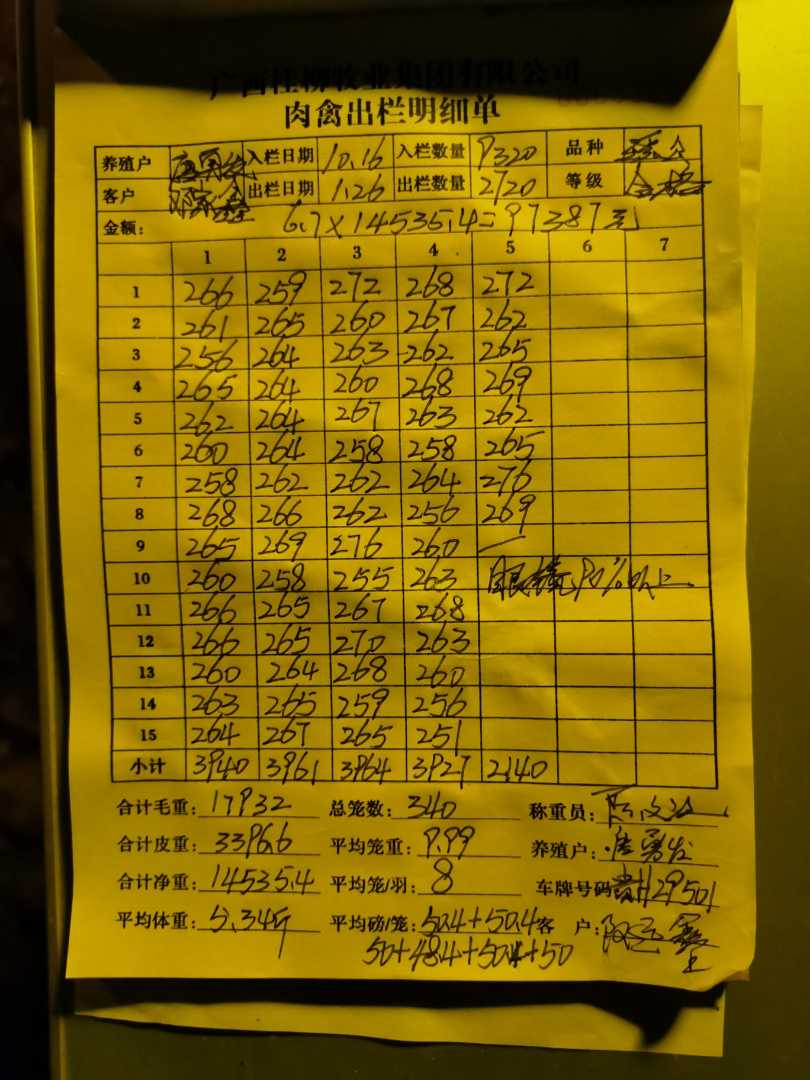 广西桂柳牧业集团有限公司
肉禽出栏明细单
养殖户 入栏日期 10.16 入栏数量 9320 品种
客户 出栏日期 1.26 出栏数量 2720 等级 合格
金额: 6.7×14535.4=97387元
1 2 3 4 5 6 7
1 266 259 272 268 272
2 261 265 260 267 262
3 256 264 263 262 265
4 265 264 260 268 269
5 262 264 267 263 262
6 260 264 258 258 265
7 258 262 262 264 276
8 268 266 262 256 269
9 265 269 276 260 —
10 260 258 255 263 90%以上.
11 266 265 267 268
12 266 265 270 263
13 260 264 268 260
14 263 265 259 256
15 264 267 265 251
小计 3940 3961 3964 3927 2140
合计毛重: 17932 总笼数: 340 称重员:
合计皮重: 3396.6 平均笼重: 9.99 养殖户: 唐勇发
合计净重: 14535.4 平均笼/羽: 8 车牌号码 29501
平均体重: 5.34斤 平均磅/笼: 50.4+50.4 客 户:
50+48.4+50.4+50